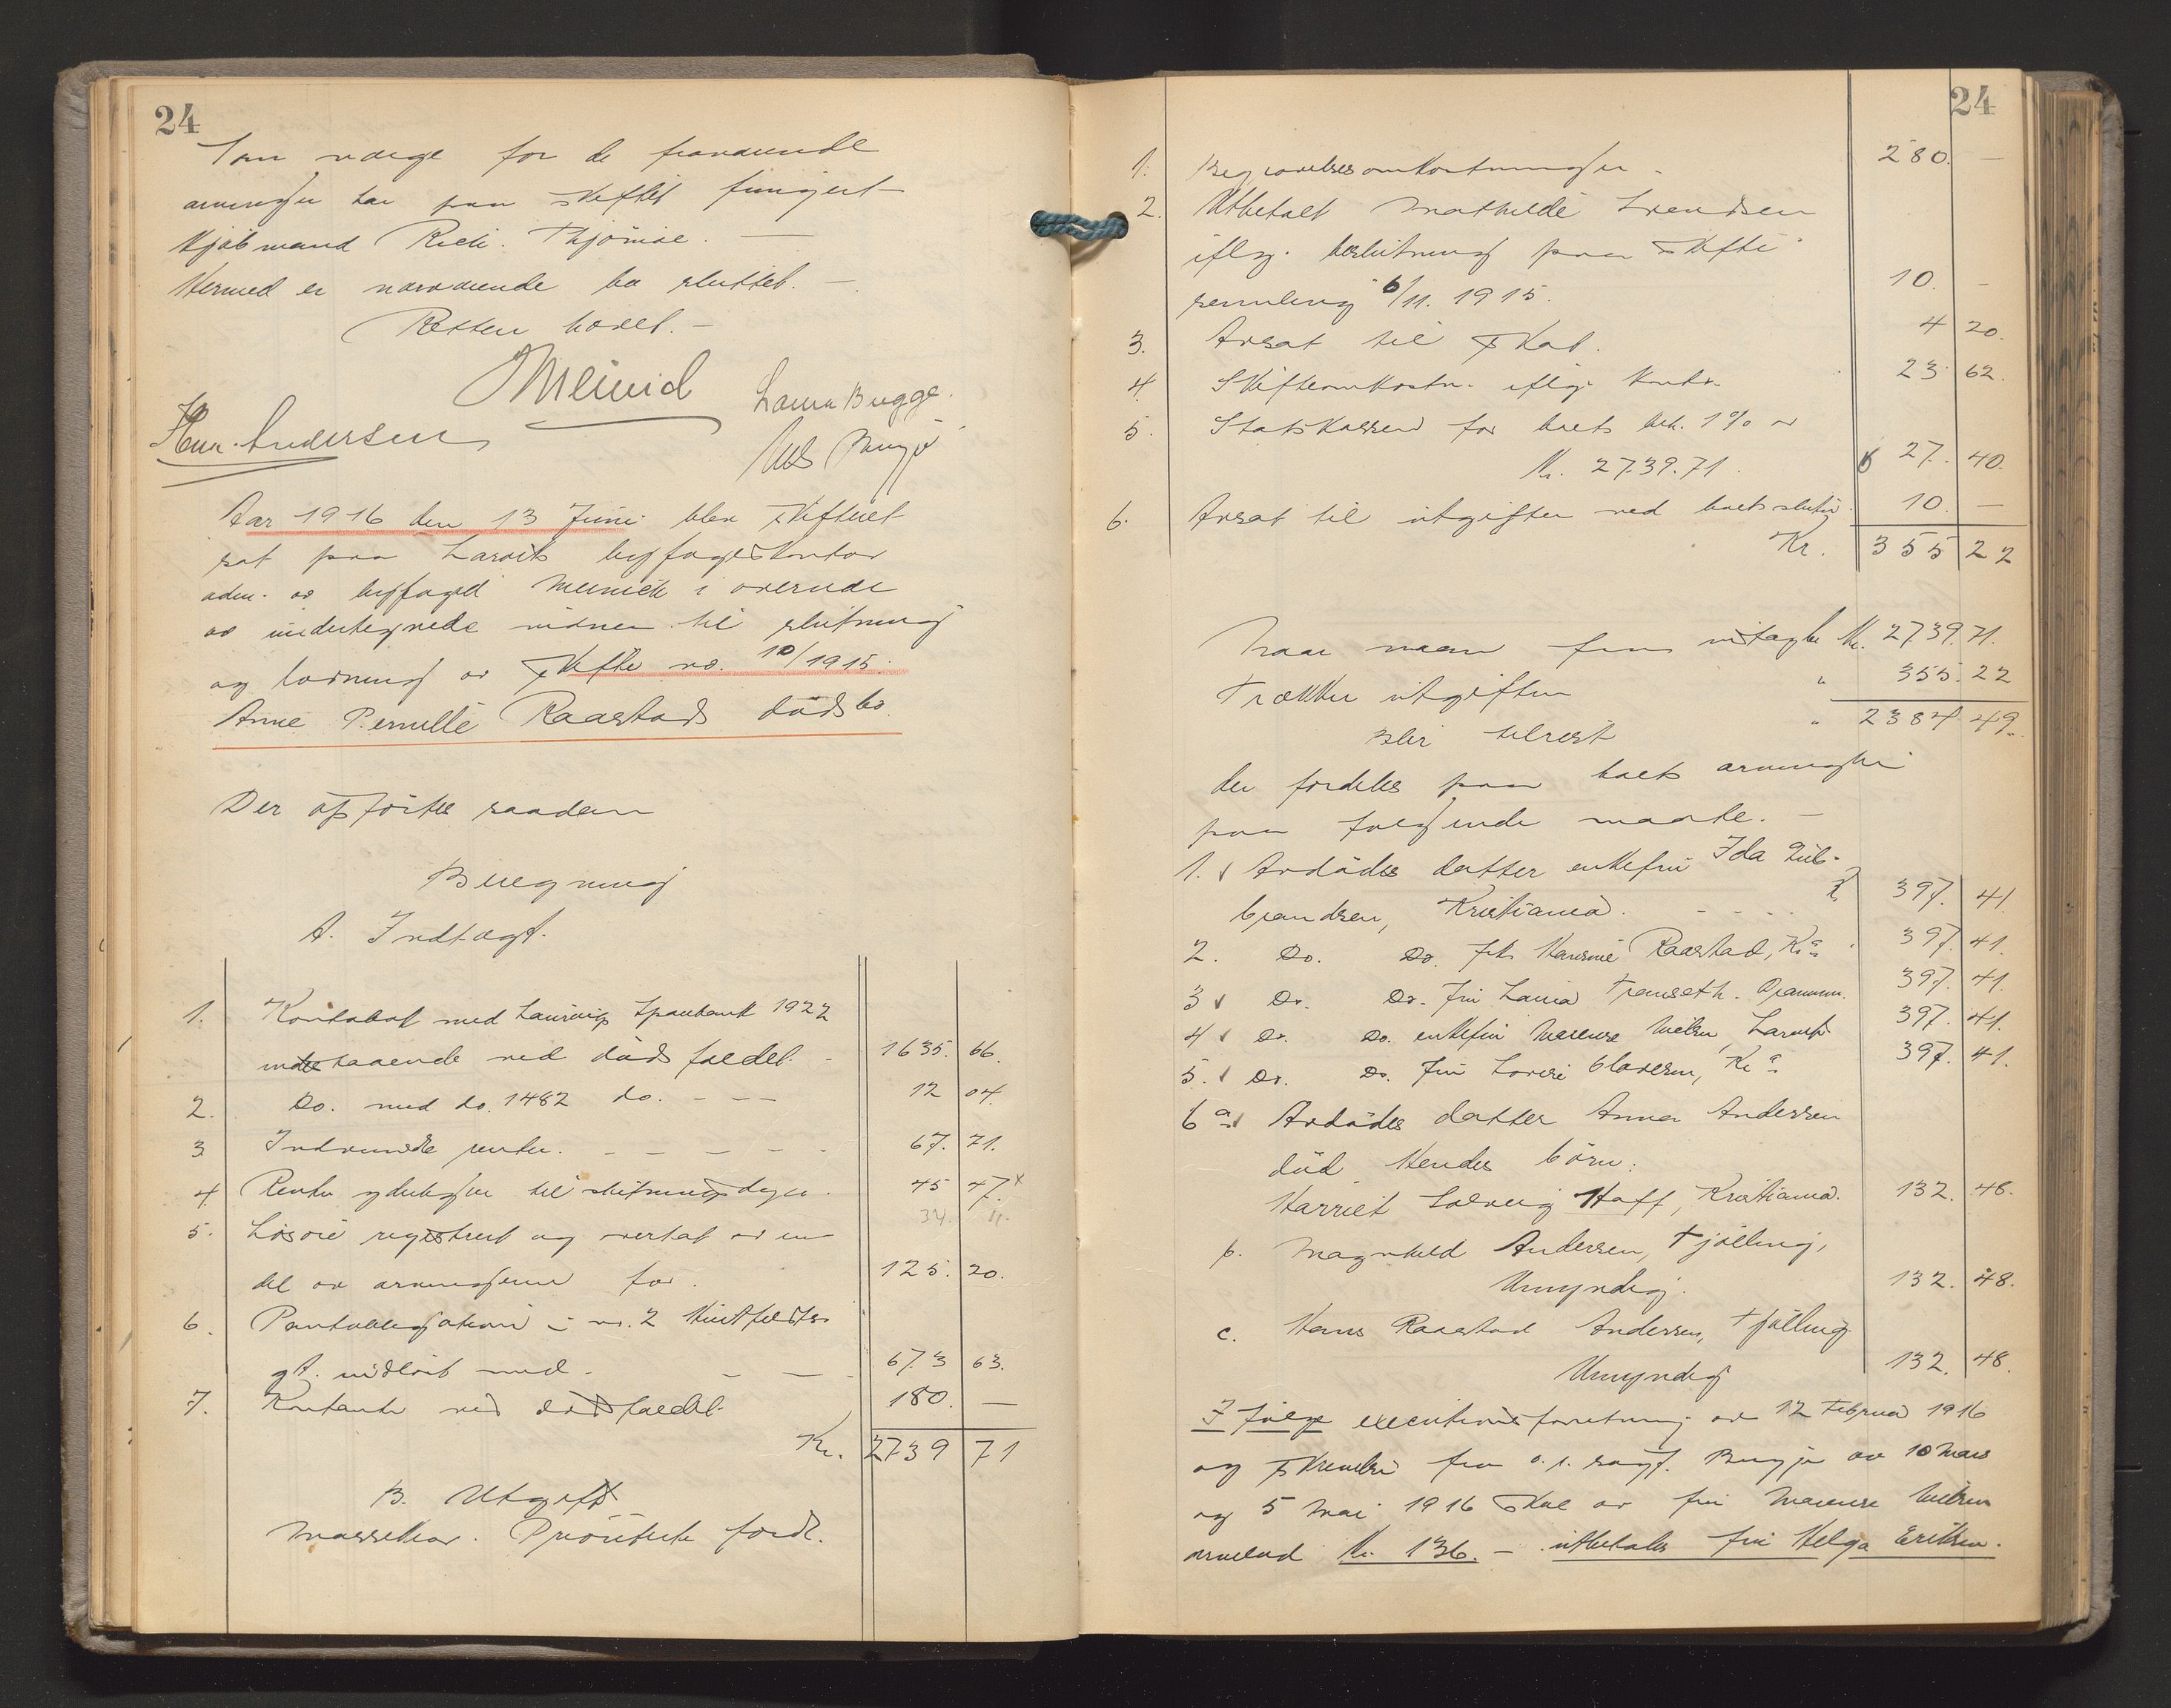 24
Som værge for de fraværende
arvinger har paa skiftet fungert
kjøbmand Rich. Thjømøe. —
Hermed er nærværende bo sluttet. —
Retten hævet. —
Meinich Laura Bugge.
Henr. Andersen
Aar 1916 den 13 Juni blev skifteret
sat paa Larviks byfogedkontor
adm. av byfoged Meinich i overvær
av undertegnede vidner til slutning
og lovning av Skifte no. 10/1915.
Anne Pernille Raastads dødsbo.
Der opførtes saadan
Beregning
A. Indtægt.
1. Kontobok med Laurvigs Sparebank 1922
indestaaende ved dødsfaldet. - 1635. 66.
2. Do. med do. 1482 do. - - - 12 04.
3 Indvundne renter. - - - - - 67. 71.
4. Renter ydterligere til slutningsdagen. 45 47. x
34. 11.
5. Løsøre registrert og overtat av en
del av arvingerne for. 125. 20.
6. Pantobligation i no. 2
gt. indløst med. - — - 673 63.
7. Kontante ved dødsfaldet. 180. —
Kr. 2739 71
B. Utgift
Massekrav. Prioriterte fordr.
24
1. Begravelsesomkostninger. 280. —
2. Utbetalt Mathilde Svendsen
iflg. beslutning paa skifte-
samling 6/11. 1915. 10. -
3. Avsat til Skat. 4 20.
4. Skifteomkostn. iflg. konto. 23. 62.
5. Statskassen for boets beh. 1% av
Kr. 2739.71. 27. 40.
6. Avsat til utgifter ved boets slutn. 10. —
Kr. 355 22
Naar man fra indtægter Kr. 2739.71.
trækker utgifter " 355.22
Blir tilrest " 2384 49.
der fordeles paa boets arvinger
paa følgende maate. —
1. Avdødes datter enkefru Ida Gul-
brandsen, Kristiania. - - - - 397. 41.
2. Do. Do. frk. Hansine Raastad, Kr.a. 397. 41.
3 Do. Do. fru Laura Transeth. Drammen. 397. 41.
4 Do. Do. enkefru Marense Nielsen, Larvik 397. 41.
5. Do. Do. fru Lovise Clavesen, Kr.a. 397. 41.
6 a Avdødes datter Anna Andersen
død. Hendes børn:
Harriet Solveig Hoff, Kristiania. 132. 48.
b. Magnhild Andersen, Tjølling,
Umyndig. 132. 48.
c. Hans Raastad Andersen, Tjølling
Umyndig 132. 48.
I følge executionsforretning av 12 Februar 1916
og skrivelse fra o. r. sagf. Bugge av 10 Mars
og 5 Mai 1916 skal av fru Marense Nielsen
arvelod Kr. 136. — utbetales fru Helga Eriksen.